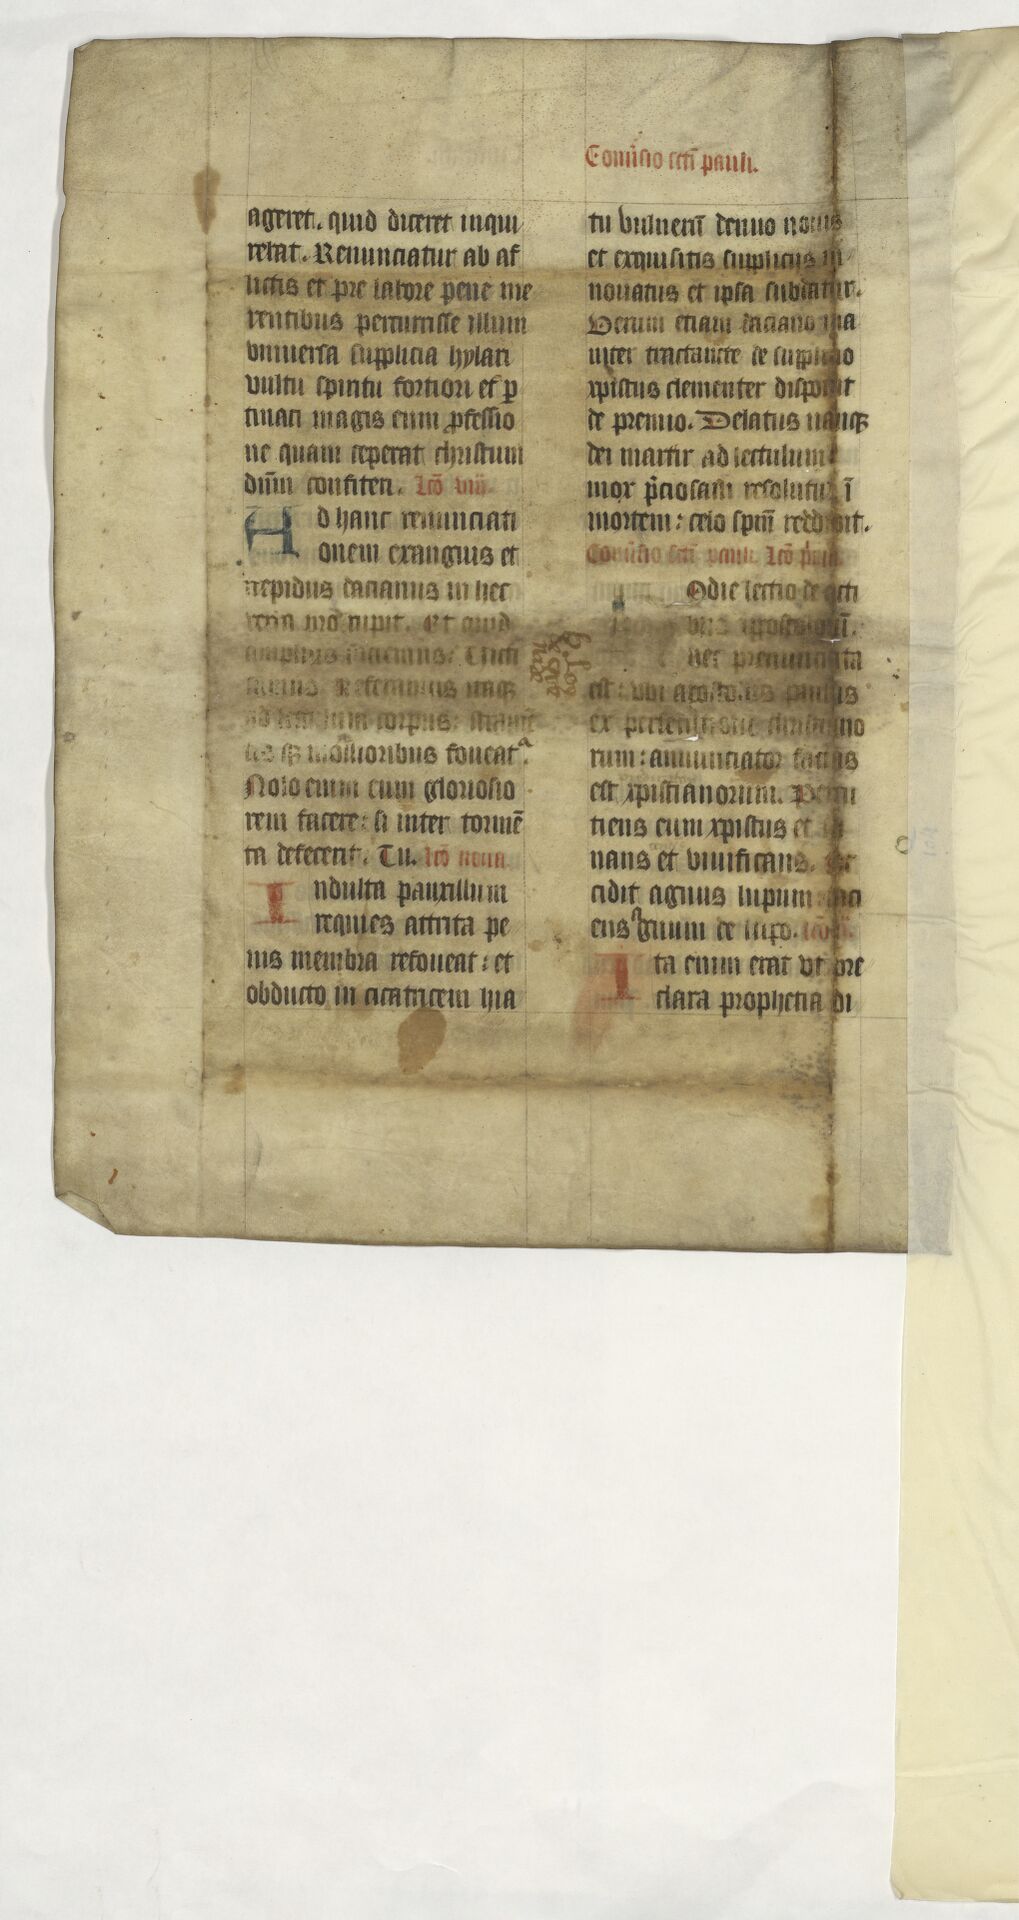 Conũsio scti pauli.
ageret. quid diceret inqui
rebat. Renunciatur ab af
flictis et pre labore pene me
rentibus percurrisse illum
vniuersa supplicia hylari
vultu spiritu fortiori et ꝑ
tinaci magis eum ꝓfessio
ne quam ceperat christum
dñm confiteri. lcõ viii.
Ad hanc renunciati
onem exanguis et
trepidus dacianus in hec
Et quid
amplius faciamus
ad lectulum corpus: stramē
tis sꝫ mollioribus foueatᷣ.
Nolo enim eum gloriosio
rem facere: si inter tormē
ta defecerit. Tu. lcõ nona
Indulta pauxillum
requies attrita pe
nis membra refoueat: et
obducto in cicatricem hia
tu vulnerũ denuo nouis
et exquisitis supplicijs in
nouatus et ipsa subdatur.
Verum etiam daciano ina
niter tractante de supplicio
xpistus clementer disposuit
de premio. Delatus nanqꝫ
dei martir ad lectulum
mox p̃ciosam resolutus ĩ
mortem: celo spm̃ reddidit.
Conũsio scti pauli. lcõ p̃ma.
Odie lectio de acti
bus apostolorũ.
hec pronunciata
est: vbi apostolus paulus
ex persecutore christiano
rum: annunciator factus
est xpistianorum. Percu
tiens eum xpistus et sa
nans et viuificans. Oc
cidit agnus lupum: faci
ens agnum de lupo. lcõ ij.
Ita enim erat vt pre
clara prophetia di